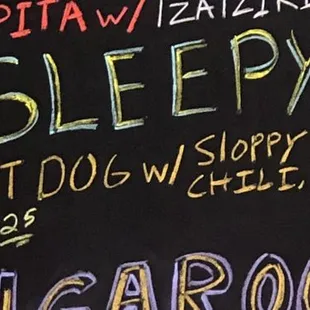 PITA W/ TZATZIKI
SLEEPY
T DOG W/ SLOPPY
CHILI,
25
GARO